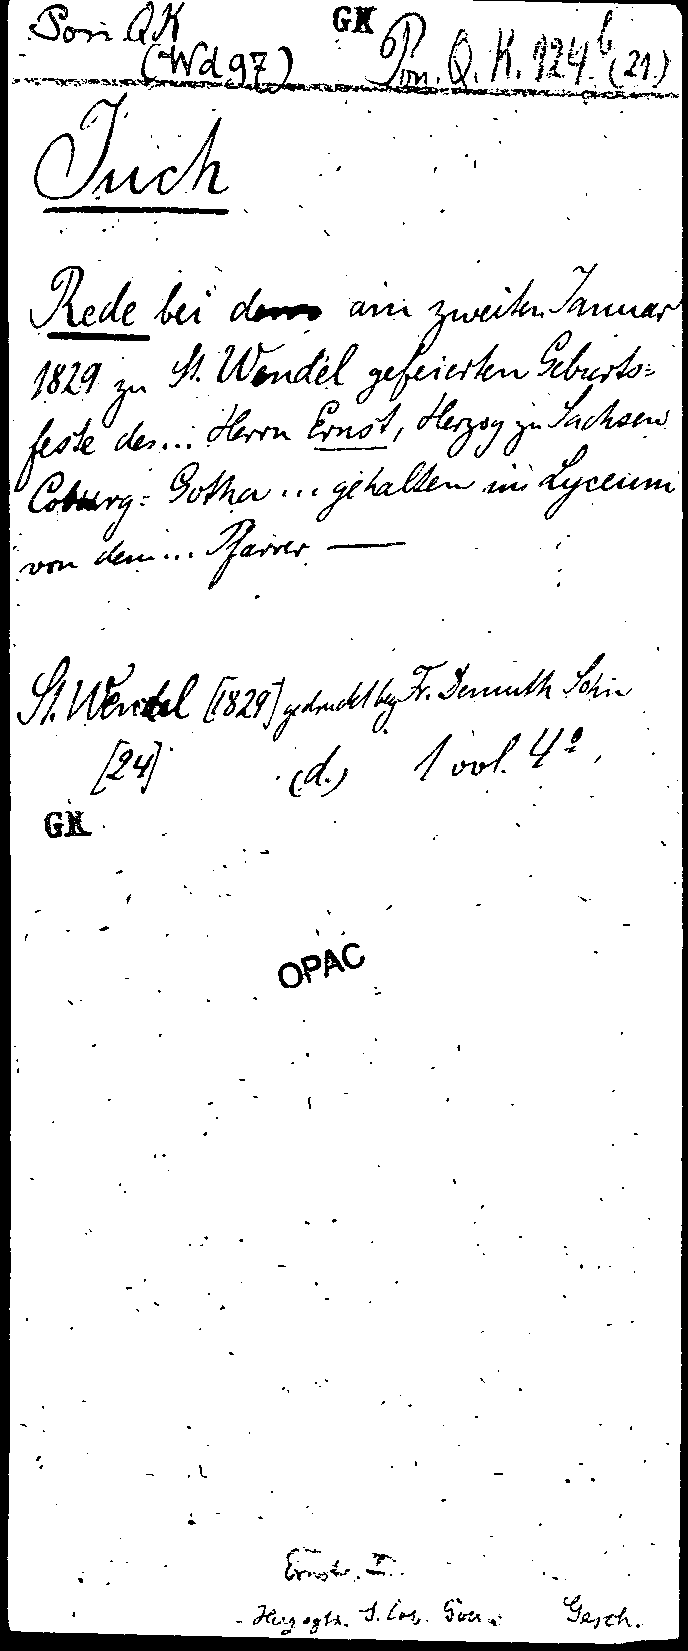 Pon QK GK
(Wd 97) Pon. Q. K. 124.b (21.)
Juch
Rede bei dem am zweiten Januar
1829 zu St. Wendel gefeierten Geburts=
feste des... Herrn Ernst, Herzog zu Sachsen
Coburg= Gotha ... gehalten im Lyceum
von dem ... Pfarrer —
St. Wendel [1829] gedruckt bey Fr. Demuth Sohn
[24] (d.) 1 vol. 4º.
GK
OPAC
Ernst I.
Herzogth. S. Cob. Goth. Gesch.